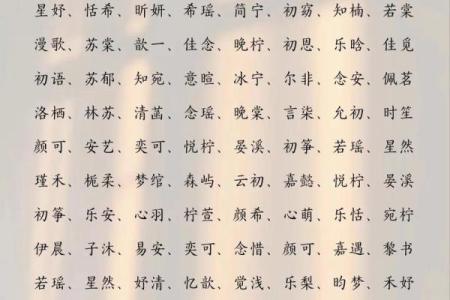 星妤、恬希、昕妍、希瑶、简宁、初窈、知楠、若棠
漫歌、苏棠、歆一、佳念、晚柠、初恩、乐晗、佳觅
初语、苏郁、知宛、意暄、冰宁、尔非、念安、佩茗
洛栖、林苏、清菡、念瑶、晚棠、言柒、允初、时笙
颜可、安艺、奕可、悦柠、晏溪、初筝、若瑶、星然
瑾禾、栀柔、梦绾、森屿、云初、嘉懿、悦柠、晏溪
初筝、乐安、心羽、柠萱、颜希、心萌、乐恬、宛柠
伊晨、子沐、易安、奕可、念惜、颜可、嘉遇、黎书
若瑶、星然、妤清、忆歆、觉浅、乐梨、昀梦、禾妤